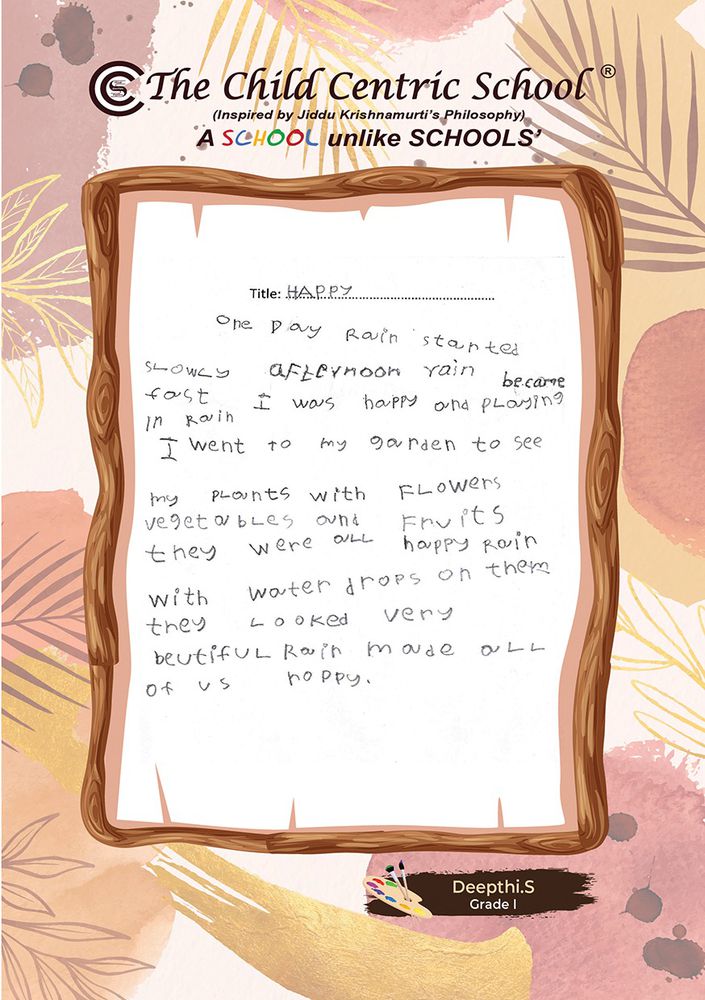 The Child Centric School ®
(Inspired by Jiddu Krishnamurti's Philosophy)
A SCHOOL unlike SCHOOLS'
Title: HAPPY
One Day Rain started
SLOWLY afternoon rain became
fast I was happy and playing
in Rain
I went to my garden to see
my plants with FLOWERS
vegetables and Fruits
they were all happy Rain
with water drops on them
they Looked very
beutifuL Rain made aLL
of us happy.
Deepthi.S
Grade I